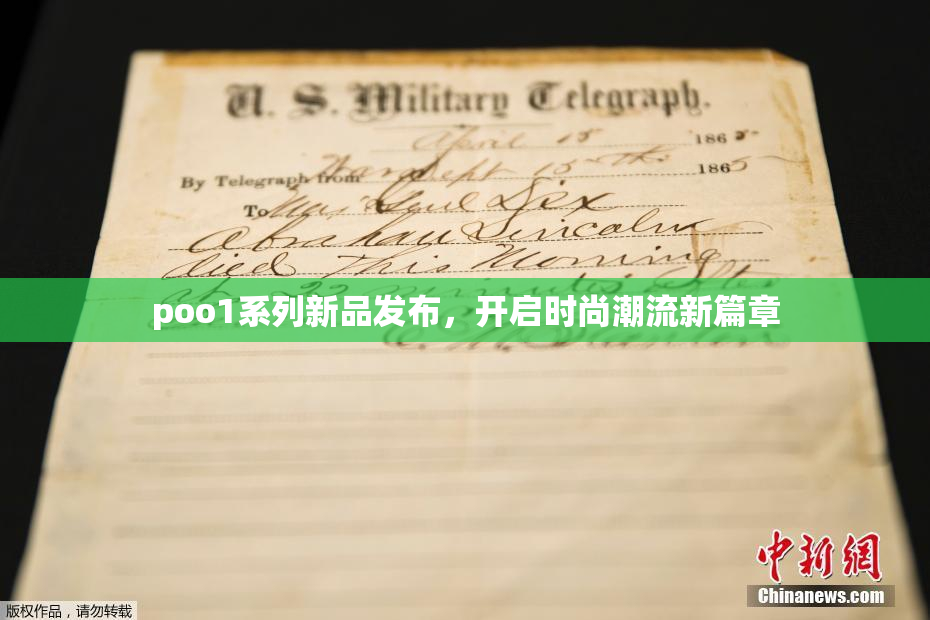 U. S. Military Telegraph.
April 15 1865.
By Telegraph from War Dept 15th 1865
To Maj Genl Dix
Abraham Lincoln
died This Morning
at 22 minutes after
poo1系列新品发布，开启时尚潮流新篇章
中新网
Chinanews.com
版权作品，请勿转载